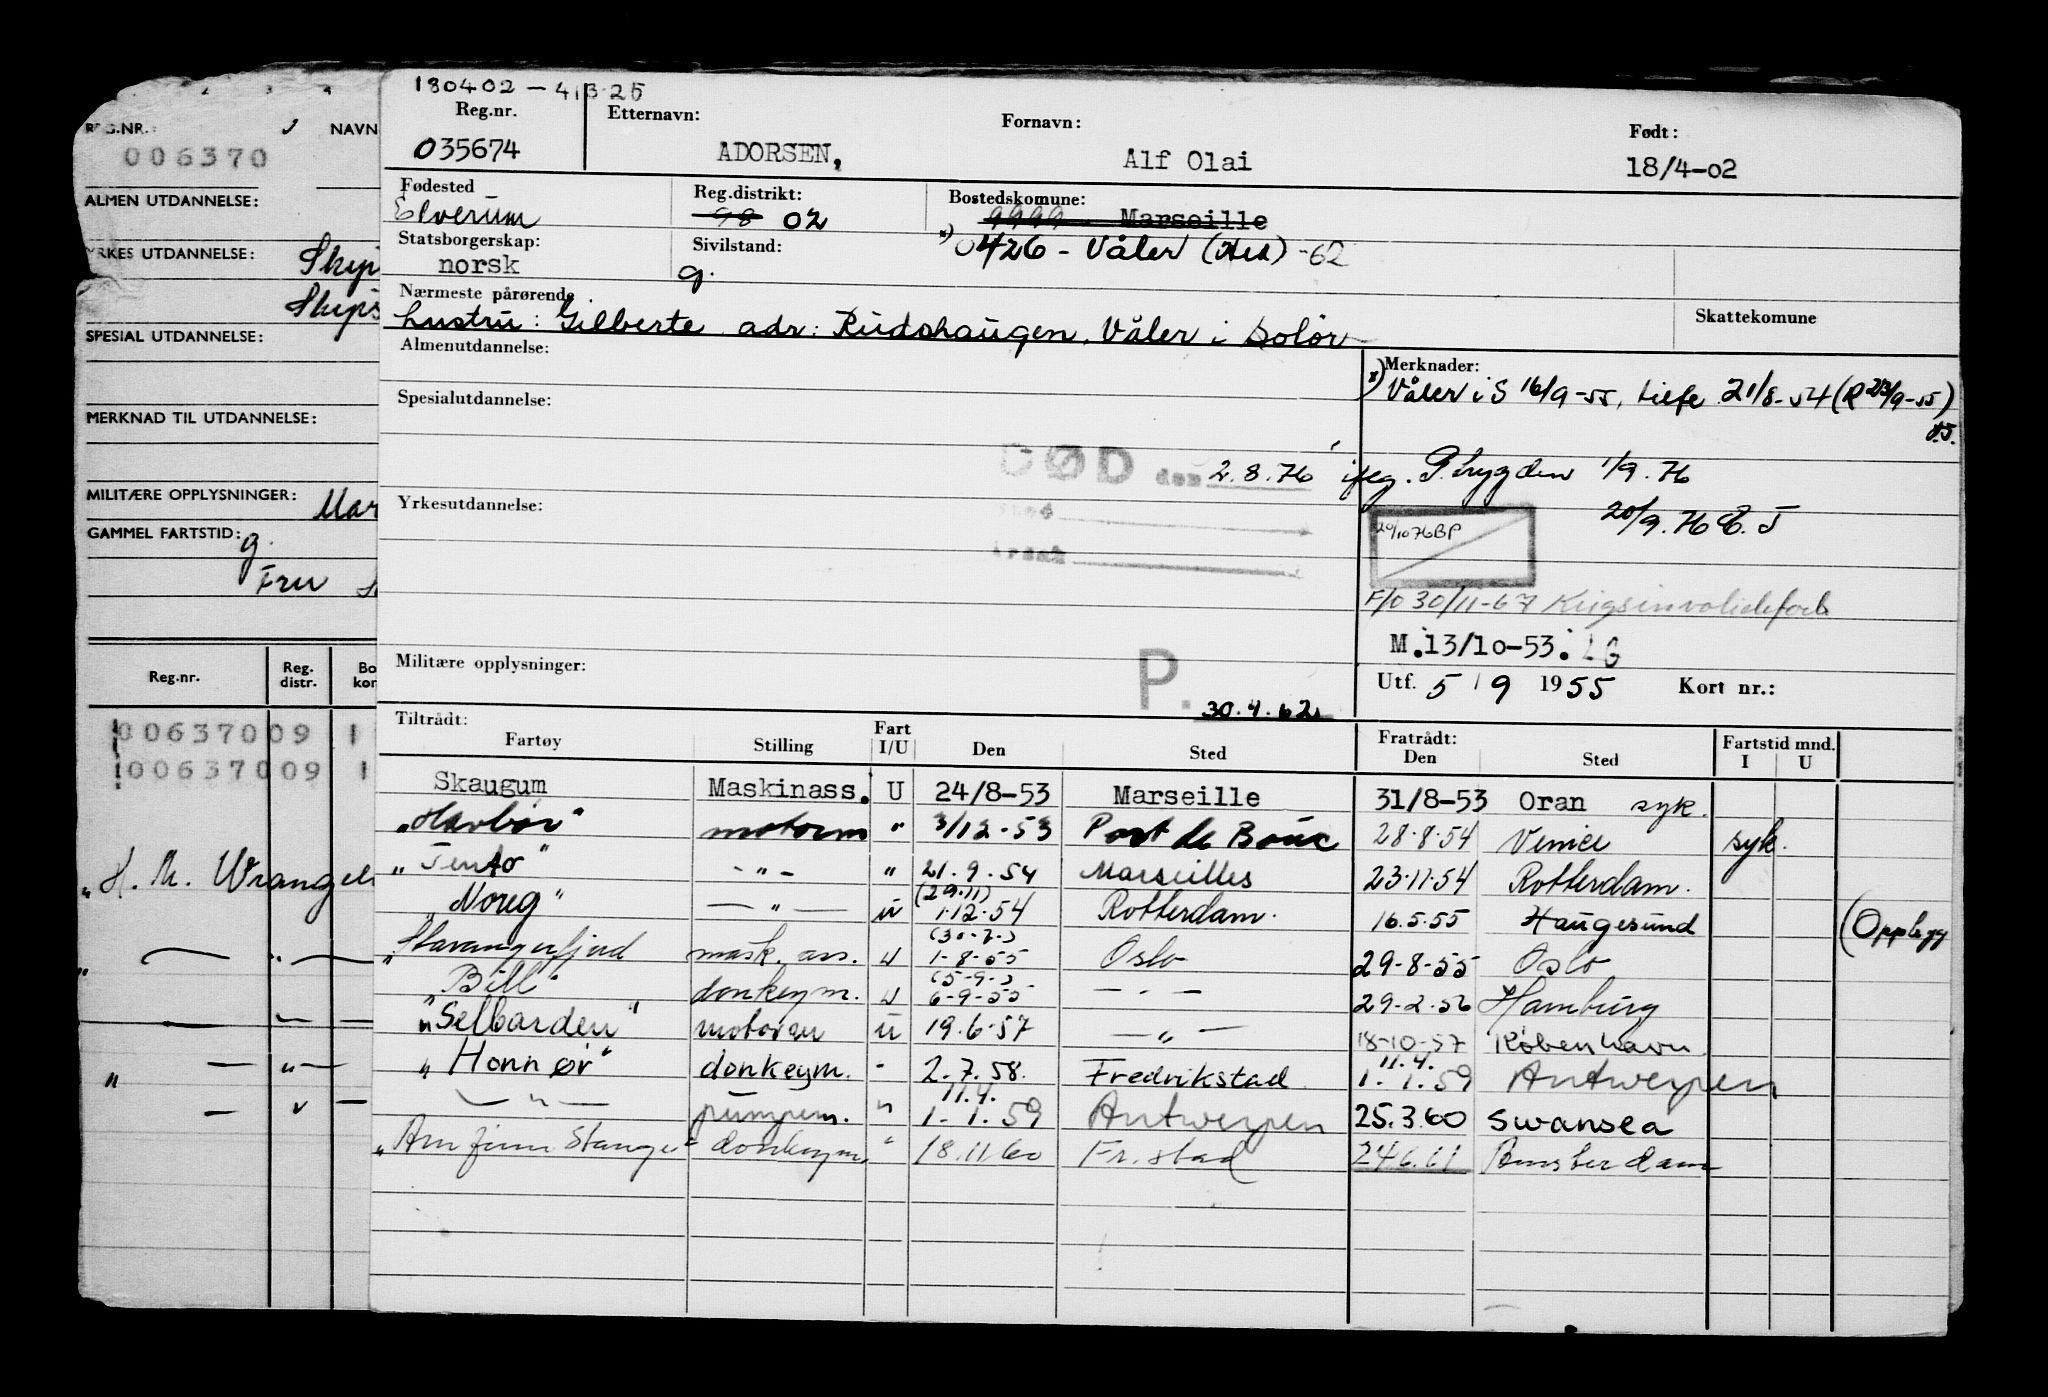 180402 - 41325
Reg.nr. Etternavn: Fornavn: Født:
035674 ADORSEN, Alf Olai 18/4-02
Fødested Reg.distrikt: Bostedskomune:
Elverum 98 02 9999 Marseille
Statsborgerskap: Sivilstand: x) 0426 - Våler (Hed) -62
norsk g.
Nærmeste pårørende Skattekomune
hustru: Gilberte adr: Rudshaugen, Våler i Solør
Almenutdannelse: Merknader:
x) Våler i S 16/9-55, 21/8-54 (R 23/9-55)
Spesialutdannelse:
DØD den 2.8.76 iflg. P.trygden 1/9.76
Sted 20/9.76 E.T
Yrkesutdannelse: 20/10 76 BP
Årsak
F/O 30/11-67 Krigsinvalideforb.
M.13/10-53. LG
Militære opplysninger: P. 30.4.62 Utf. 5 / 9 1955 Kort nr.:
Tiltrådt: Fart Fratrådt: Fartstid mnd.
Fartøy Stilling I/U Den Sted Den Sted I U
Skaugum Maskinass. U 24/8-53 Marseille 31/8-53 Oran syk.
"Havbør" motorm " 3/12-53 Port de Bouc 28-8-54 Venice syk.
"Tento" - " - " 21.9.54 Marseilles 23-11-54 Rotterdam.
(29.11)
"Noreg" — " — u 1.12.54 Rotterdam. 16.5.55 Haugesund (Opplegg
(30-7-)
"Stavangerfjord mask. ass. u 1-8-55 Oslo 29-8-55 Oslo
(5-9-)
"Bill" donkeym. u 6-9-55 - " - 29-2-56 Hamburg
"Selbarden" motorm u 19.6.57 - " - 18-10-57 København
11.4.
"Honnør" donkeym. - 2.7.58. Fredrikstad 1.1.59 Antwerpen
11.4.
— " — pumpem. " 1.1.59 Antwerpen 25.3.60 Swansea
"Arnfinn Stange" donkeym. " 18.11.60 Fr.stad 24.6.61 Amsterdam
REG.NR.: NAVN
006370
ALMEN UTDANNELSE:
YRKES UTDANNELSE: Skip
Skips
SPESIAL UTDANNELSE:
MERKNAD TIL UTDANNELSE:
MILITÆRE OPPLYSNINGER: Mar
GAMMEL FARTSTID: g.
Fru
Reg.nr. Reg. distr. Bo kom
00637009 1
00637009 1
"H. M. Wrangell
" — " —
— " —
" — " —
— " —